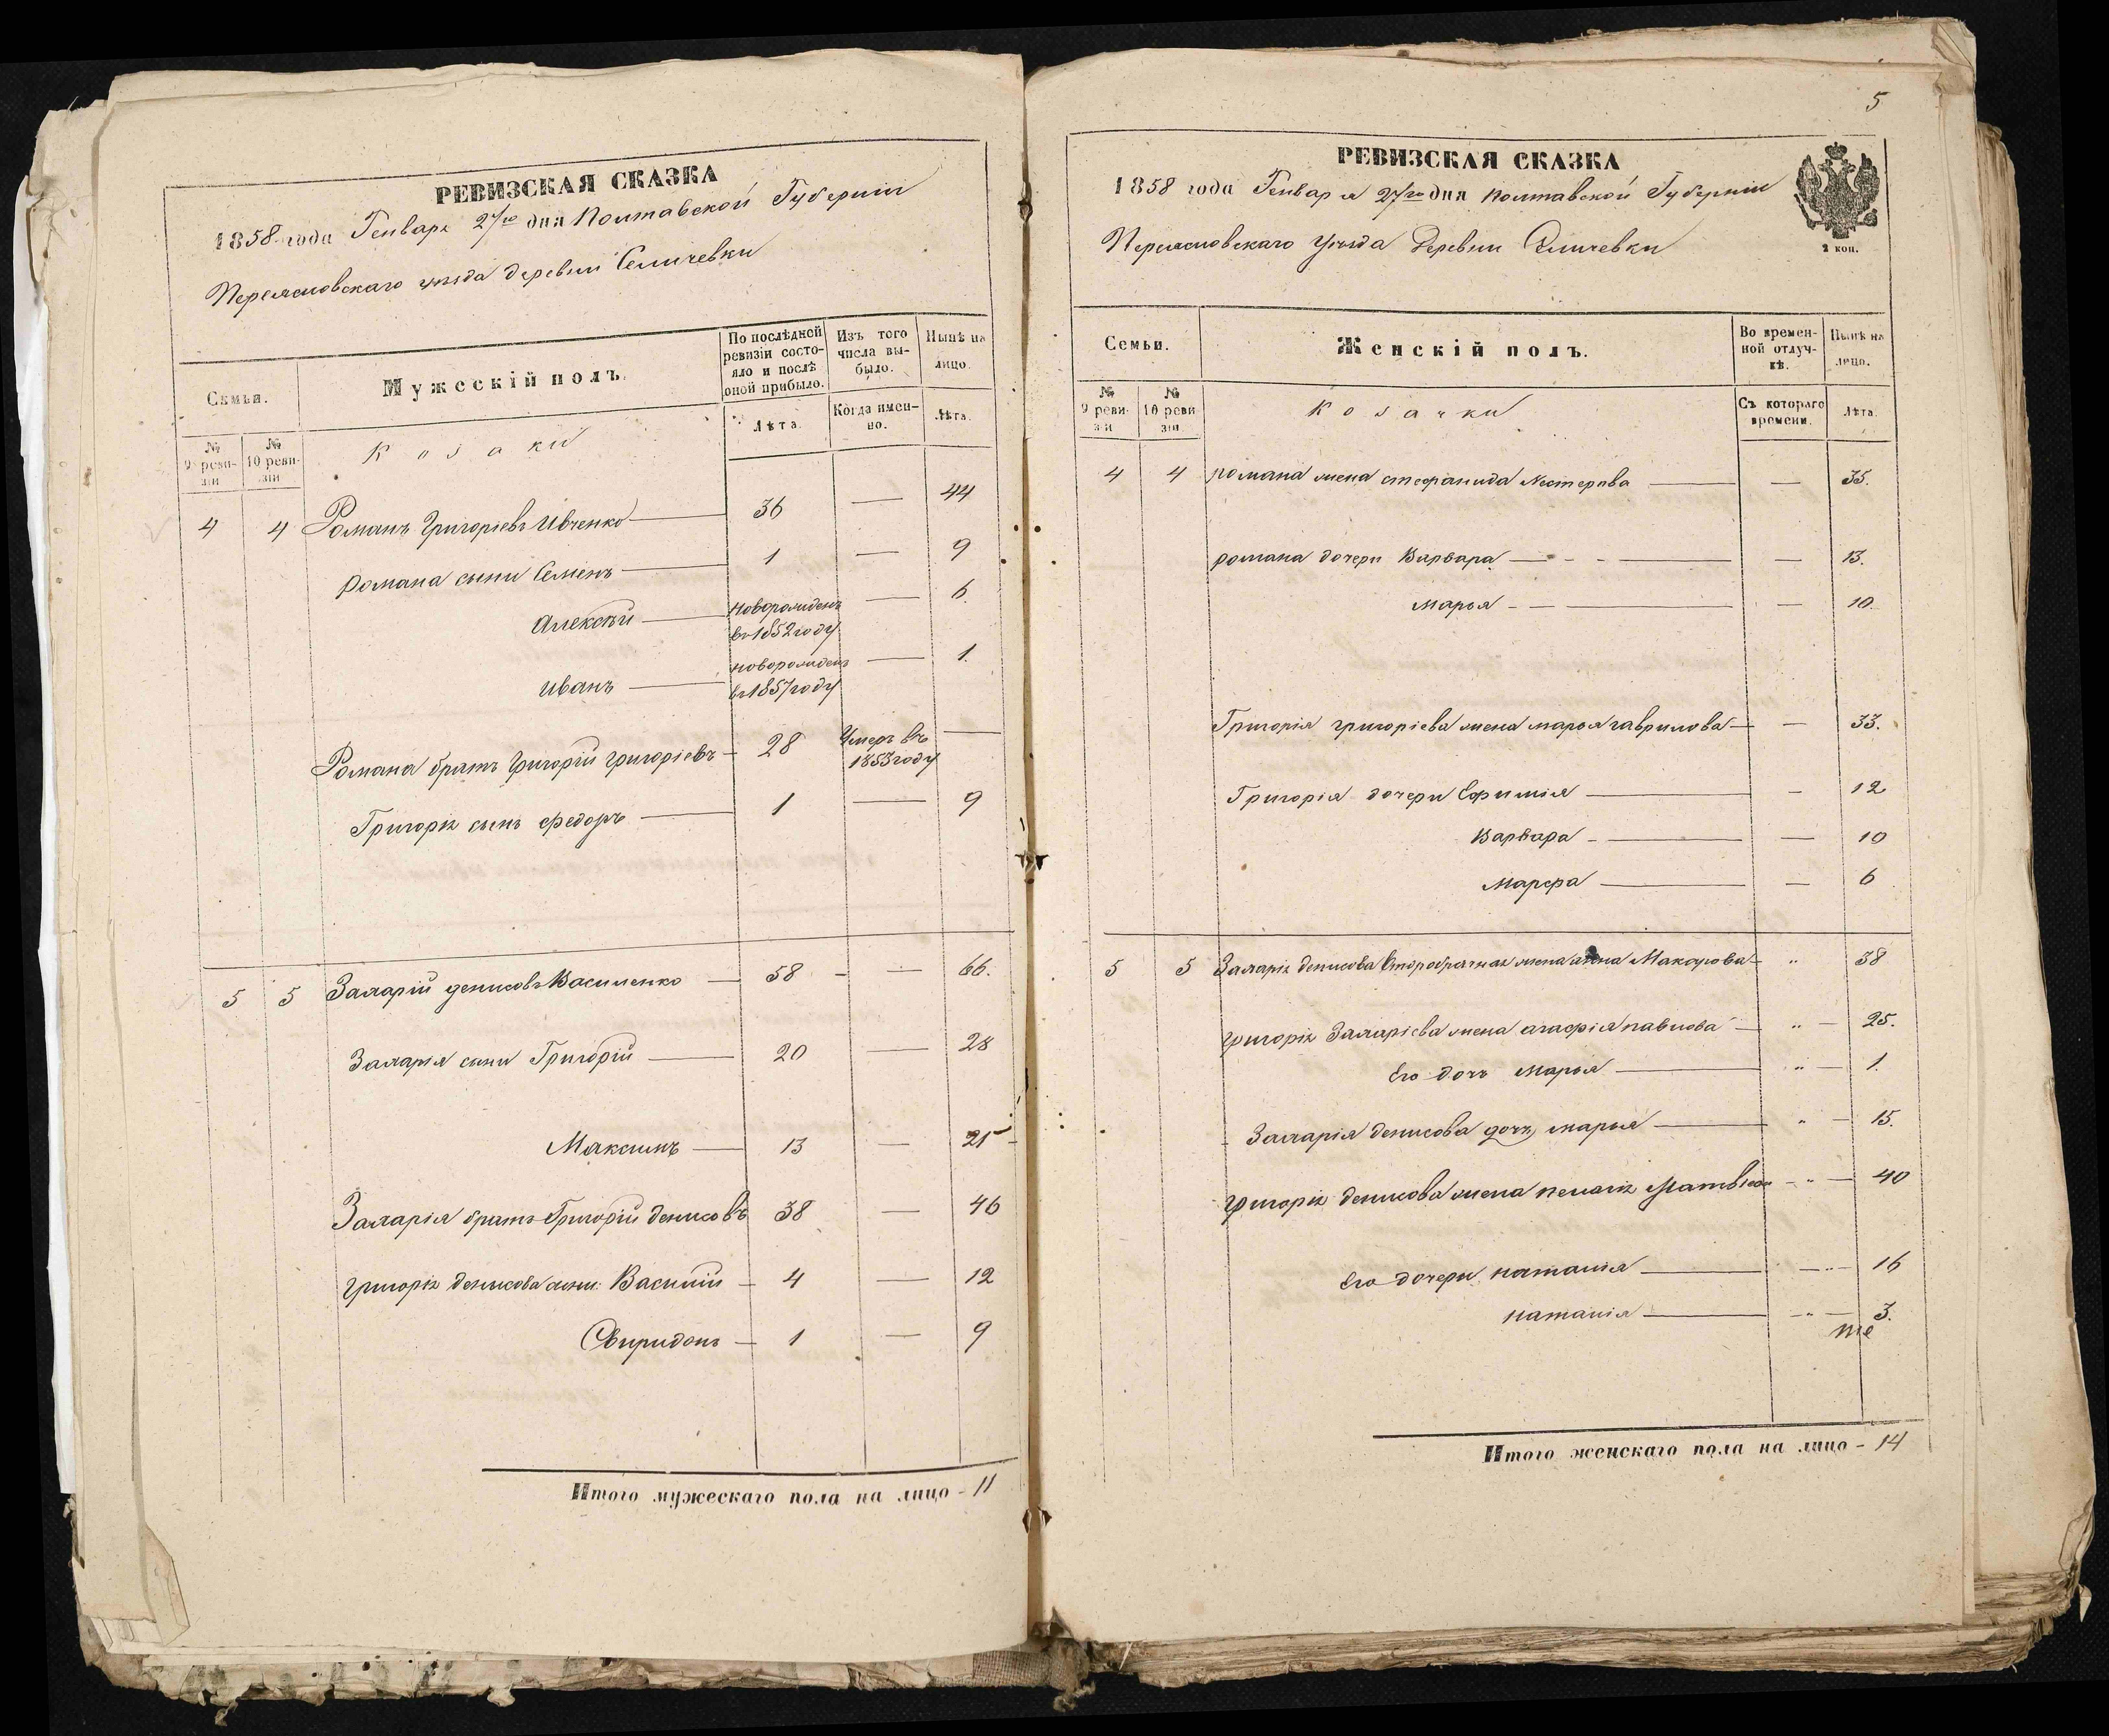 РЕВИЗСКАЯ СКАЗКА
1858 года Генваря 27го дня Полтавской Губерніи
Переясловскаго уѣзда деревни Селичевки
Семьи.
Мужескій полъ.
По послѣдней ревизіи состояло и послѣ оной прибыло.
Изъ того числа выбыло.
Нынѣ на лицо.
№ 9 ревизіи
№ 10 ревизіи
Козаки
Лѣта.
Когда именно.
Лѣта.
4 4 Романъ Григоріевъ Ивченко — 36 — 44
Романа сыни Семенъ — 1 — 9
Алексѣй — новорожденъ в 1852 году — 6
Иванъ — новорожденъ в 1857 году — 1.
Романа братъ Григорій Григоріевъ — 28 Умеръ въ 1853 году —
Григорія сынъ Федоръ — 1 — 9
5 5 Захарій Денисовъ Василенко — 58 - — 66.
Захарія сыни Григорій — 20 — 28
Максимъ — 13 — 21 -
Захарія братъ Григорій Денисовъ 38 — 46
Григорія Денисова сыни Василій — 4 — 12
Свиридонъ — 1 — 9
Итого мужескаго пола на лицо - 11
5
РЕВИЗСКАЯ СКАЗКА
1858 года Генваря 27го дня Полтавской Губерніи
Переясловскаго Уѣзда Деревни Селичевки
2 коп.
Семьи.
Женскій полъ.
Во временной отлучкѣ.
Нынѣ на лицо.
№ 9 ревизіи
№ 10 ревизіи
Козачки
Съ котораго времени.
Лѣта.
4 4 Романа жена Стефанида Нестерова — — 35.
Романа дочери Варвара — - - — — 13.
Марья - — — — 10.
Григорія Григоріева жена Марья Гаврилова — — 33.
Григорія дочери Ефимія — — 12
Варвара - — — 10
Марфа — — 6
5 5 Захарія Денисова второбрачная жена Анна Макарова — „ 38
Григорія Захаріева жена Агафія Павлова — „ — 25.
Его дочь Марья — „ — 1.
Захарія Денисова дочь Марья — „ — 15.
Григорія Денисова жена Пелагія - „ — 40
Его дочери Наталія — — „ — 16
Наталія — — „ — 3.
Итого женскаго пола на лицо - 14